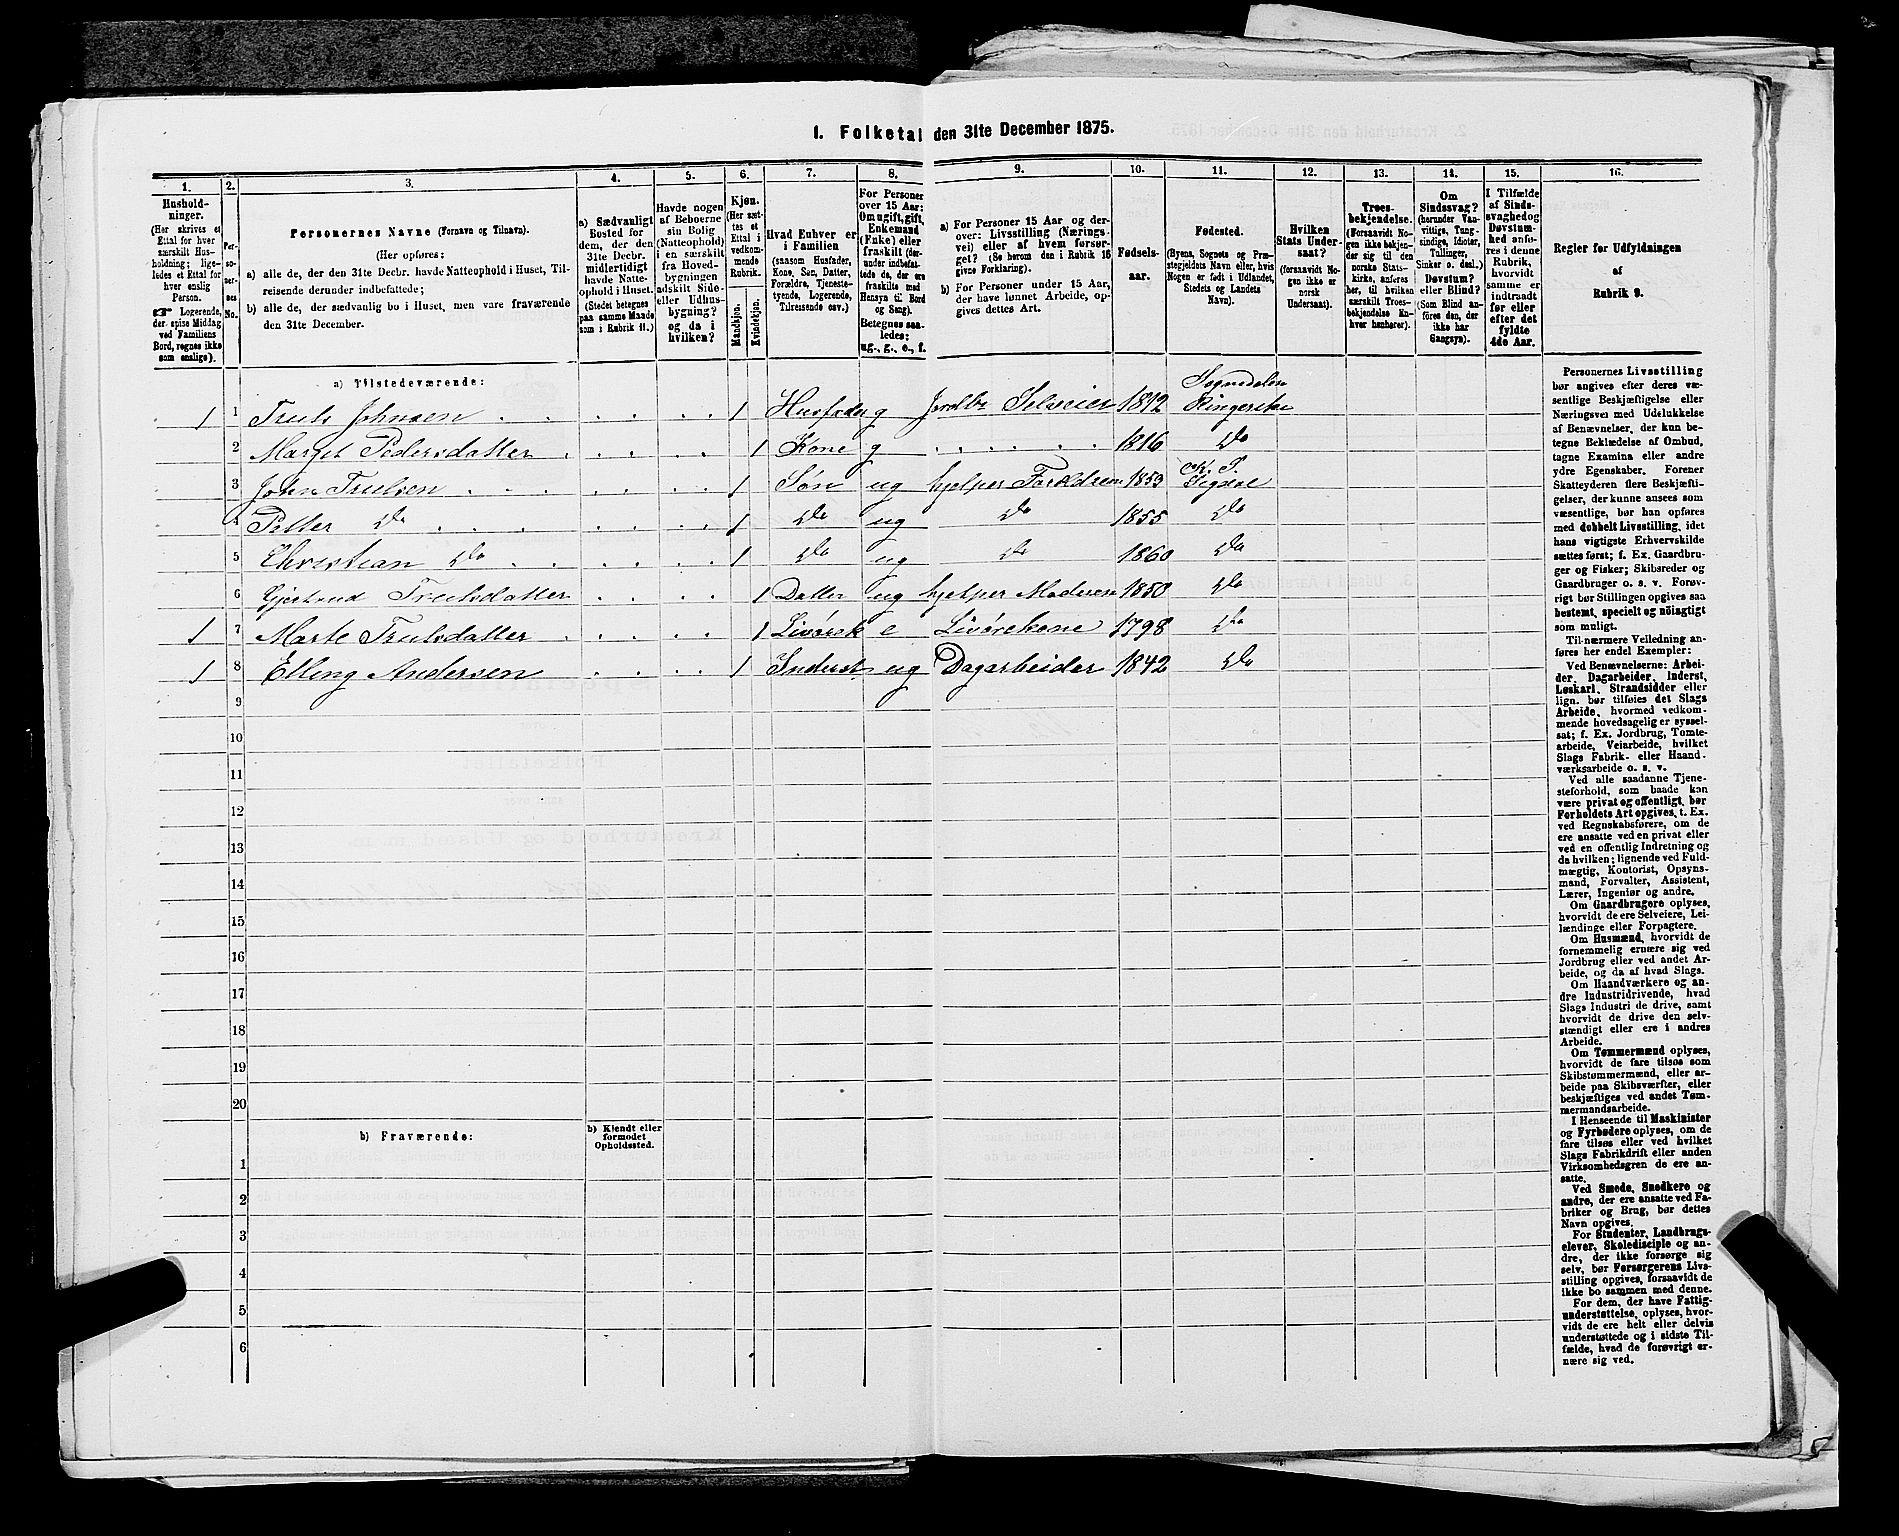 1. Folketal den 31te December 1875.
1. 2. 3. 4. 5. 6. 7. 8. 9. 10. 11. 12. 13. 14. 15. 16.
Hushold-
ninger.
(Her skrives et
Ettal for hver
særskilt Hus-
holdning; lige-
ledes et Ettal for
hver enslig
Person.
☞ Logerende,
der spise Middag
ved Familiens
Bord, regnes ikke
som enslige).
Per-
so-
ner-
nes
No.
Personernes Navne (Fornavn og Tilnavn).
(Her opføres:
a) alle de, der den 31te Decbr. havde Natteophold i Huset, Til-
reisende derunder indbefattede;
b) alle de, der sædvanlig bo i Huset, men vare fraværende
den 31te December.
a) Sædvanligt
Bosted for
dem, der den
31te Decbr.
midlertidigt
havde Natte-
ophold i Huset.
(Stedet betegnes
paa samme Maade
som i Rubrik 11.)
Havde nogen
af Beboerne
sin Bolig
(Natteophold)
i en særskilt
fra Hoved-
bygningen
adskilt Side-
eller Udhus-
bygning?
og da i
hvilken?
Kjøn.
(Her sæt-
tes et
Ettal i
vedkom-
mende
Rubrik.
Mandskjøn.
Kvindekjøn.
Hvad Enhver er
i Familien
(saasom Husfader,
Kone, Søn, Datter,
Forældre, Tjeneste-
tyende, Logerende,
Tilreisende osv.)
For Personer
over 15 Aar:
Om ugift, gift,
Enkemand
(Enke) eller
fraskilt (der-
under indbefat-
tede de, der ere
fraskilte med
Hensyn til Bord
og Seng).
Betegnes saa-
ledes:
ug., g., e., f.
a) For Personer 15 Aar og der-
over: Livsstilling (Nærings-
vei) eller af hvem forsør-
get? (Se herom den i Rubrik 16
givne Forklaring).
b) For Personer under 15 Aar,
der have lønnet Arbeide, op-
gives dettes Art.
Fødsels-
aar.
Fødested.
(Byens, Sognets og Præ-
stegjeldets Navn eller, hvis
Nogen er født i Udlandet,
Stedets og Landets
Navn).
Hvilken
Stats Under-
saat?
(forsaavidt No-
gen ikke er
norsk
Undersaat).
Troes-
bekjendelse.
(Forsaavidt No-
gen ikke bekjen-
der sig til den
norske Stats-
kirke, anføres
her, til hvilken
særskilt Troes-
bekjendelse En-
hver henhører).
Om
Sindssvag?
(herunder Van-
vittige, Tung-
sindige, Idioter,
Tullinger,
Sinker o. desl.)
Døvstum?
eller Blind?
(Som Blind an-
føres den, der
ikke har
Gangsyn).
I Tilfælde
af Sinds-
svaghed og
Døvstum-
hed anfø-
res i denne
Rubrik,
hvorvidt
samme er
indtraadt
før eller
efter det
fyldte
4de Aar.
Regler for Udfyldningen
af
Rubrik 9.
a) Tilstedeværende:
Sognedalen
1 1 Truls Johnsen 1 Husfader g Selveier 1812 Ringerike
2 Marget Pedersdatter 1 Kone g 1816 Do
3 John Trulsen 1 Søn ug hjelper Forældrene 1853 Sigdal
4 Petter Do 1 Do ug Do 1855 Do
5 Christian Do 1 Do ug Do 1860 Do
6 Trulsdatter 1 Datter ug hjelper Moderen 1850 Do
1 7 Marte Trulsdatter 1 Livørsk e Livørekone 1798 Do
1 8 Elling Andersen 1 Inderst ug Dagarbeider 1842 Do
9
10
11
12
13
14
15
16
17
18
19
20
b) Fraværende:
b) Kjendt eller
formodet
Opholdssted.
1
2
3
4
5
6
Personernes Livsstilling
bør angives efter deres væ-
sentlige Beskjæftigelse eller
Næringsvei med Udelukkelse
af Benævnelser, der kun be-
tegne Beklædelse af Ombud,
tagne Examina eller andre
ydre Egenskaber. Forener
Skatteyderen flere Beskjæfti-
gelser, der kunne ansees som
væsentlige, bør han opføres
med dobbelt Livsstilling, idet
hans vigtigste Erhvervskilde
sættes først; f. Ex. Gaardbru-
ger og Fisker; Skibsreder og
Gaardbruger o. s. v. Forøv-
rigt bør Stillingen opgives saa
bestemt, specielt og nøiagtigt
som muligt.
Til nærmere Veiledning an-
føres her endel Exempler:
Ved Benævnelserne: Arbei-
der, Dagarbeider, Inderst,
Løskarl, Strandsidder eller
lign. bør tilføies det Slags
Arbeide, hvormed vedkom-
mende hovedsagelig er syssel-
sat; f. Ex. Jordbrug, Tomte-
arbeide, Veiarbeide, hvilket
Slags Fabrik- eller Haand-
værksarbeide o. s. v.
Ved alle saadanne Tjene-
steforhold, som baade kan
være privat og offentligt, bør
Forholdets Art opgives, t. Ex.
ved Regnskabsførere, om de
ere ansatte ved en privat eller
ved en offentlig Indretning og
da hvilken; lignende ved Fuld-
mægtig, Kontorist, Opsyns-
mand, Forvalter, Assistent,
Lærer, Ingeniør og andre.
Om Gaardbrugere oplyses,
hvorvidt de ere Selveiere, Lei-
lændinge eller Forpagtere.
Om Husmænd, hvorvidt de
fornemmelig ernære sig ved
Jordbrug eller ved andet Ar-
beide, og da af hvad Slags.
Om Haandværkere og an-
dre Industridrivende, hvad
Slags Industri de drive, samt
hvorvidt de drive den selv-
stændigt eller ere i andres
Arbeide.
Om Tømmermænd oplyses,
hvorvidt de fare tilsøs som
Skibstømmermænd, eller ar-
beide paa Skibsværfter, eller
beskjæftiges ved andet Tøm-
mermandsarbeide.
I Henseende til Maskinister
og Fyrbødere oplyses, om de
fare tilsøs eller ved hvilket
Slags Fabrikdrift eller anden
Virksomhedsgren de ere an-
satte.
Ved Smede, Snedkere og
andre, der ere ansatte ved Fa-
briker og Brug, bør dettes
Navn opgives.
For Studenter, Landbrugs-
elever, Skoledisciple og an-
dre, der ikke forsørge sig
selv, bør Forsørgerens Livs-
stilling opgives, forsaavidt de
ikke bo sammen med denne.
For dem, der have Fattig-
understøttelse, oplyses, hvor-
vidt de ere helt eller delvis
understøttede og i sidste Til-
fælde, hvad de forøvrigt er-
nære sig ved.